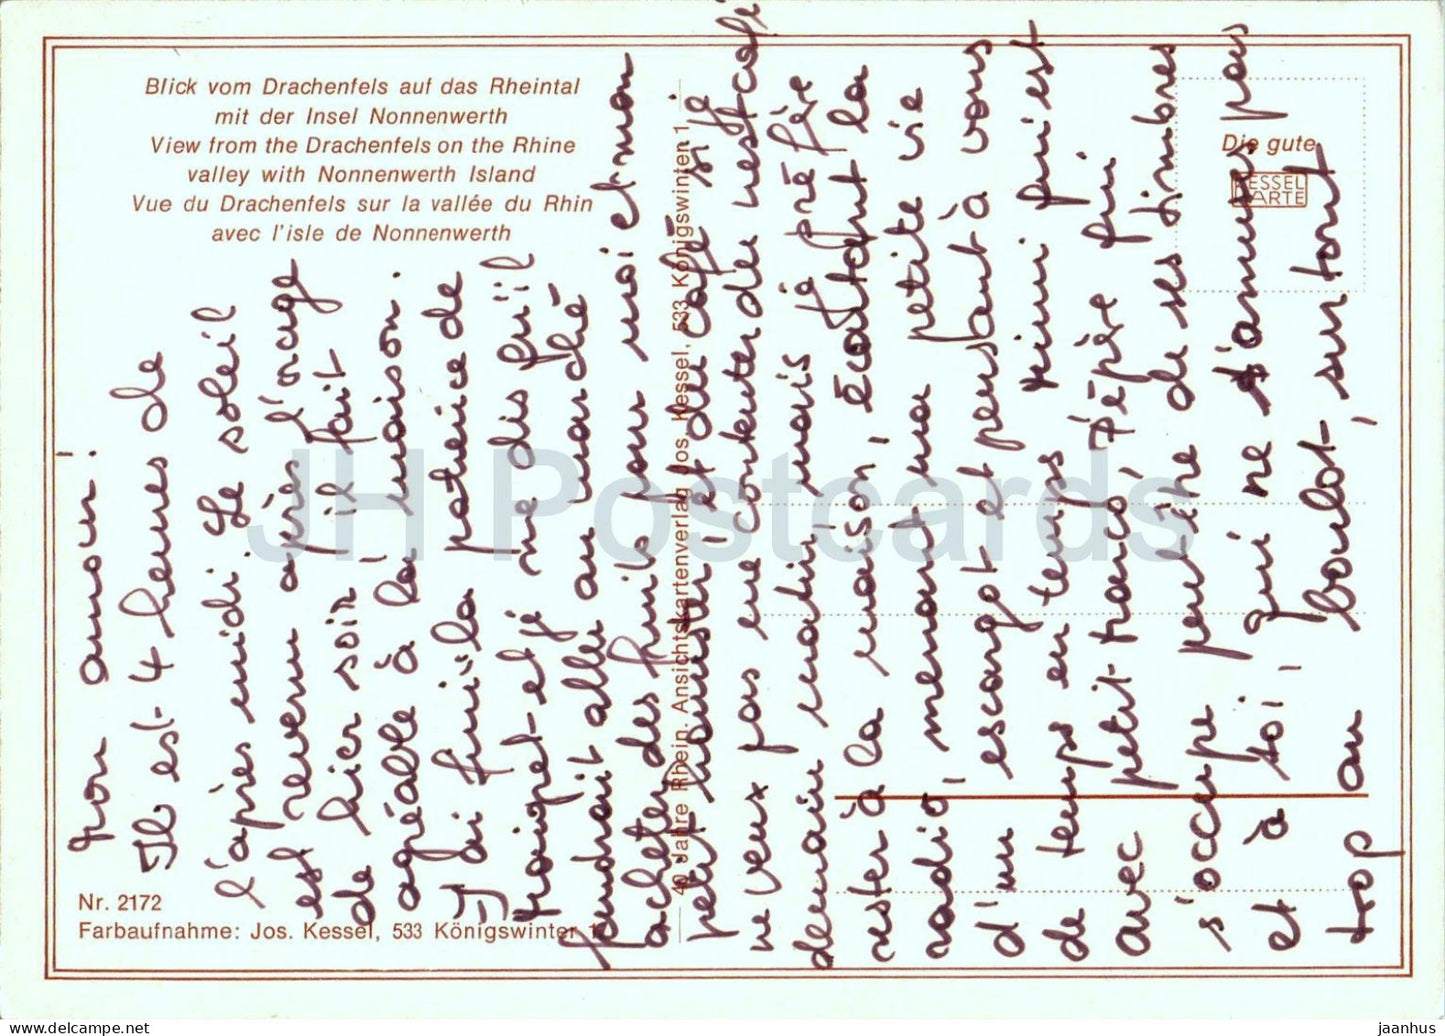 Blick vom Drachenfels auf das Rheintal
mit der Insel Nonnenwerth
View from the Drachenfels on the Rhine
valley with Nonnenwerth Island
Vue du Drachenfels sur la vallée du Rhin
avec l'isle de Nonnenwerth
Die gute
KESSEL
KARTE
Nr. 2172
Farbaufnahme: Jos. Kessel, 533 Königswinter 1
40 Jahre Rhein. Ansichtskartenverlag Jos. Kessel, 533 Königswinter 1
Mon amour!
Il est 4 heures de
l'après midi. Le soleil
est revenu après l'orage
de hier soir, il fait
agréable à la maison.
J'ai fini la patience de
Maigret et je me dis qu'il
faudrait aller au marché
acheter des fruits pour moi et mon
petit hamster, et du café si je
ne veux pas me contenter de nescafé
demain matin, mais je préfère
rester à la maison, écoutant la
radio, menant ma petite vie
d'un escargot et pensant à vous
de temps en temps mimi qui est
avec petit-franc, Pépère qui
s'occupe peut-être de ses timbres
et à toi, qui ne t'amuses pas
trop au boulot, surtout
JH Postcards
jaanhus